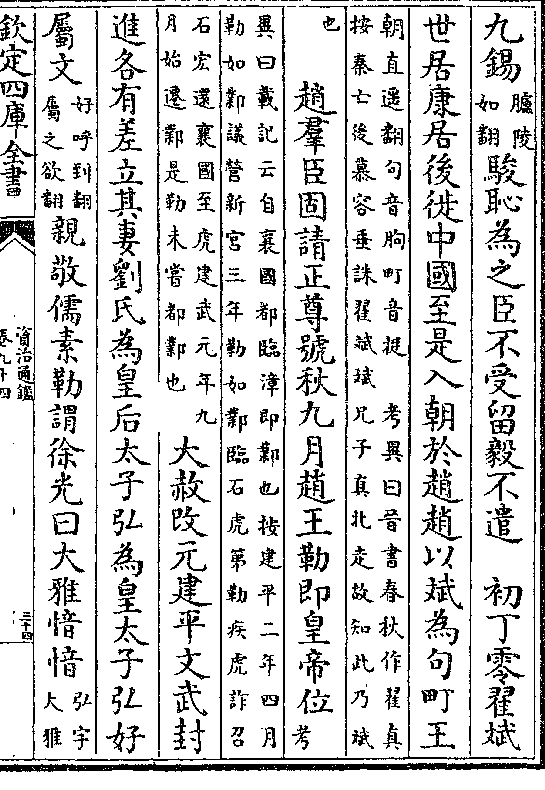 九錫臚陵如翻駿恥為之臣不受留毅不遣　初丁零翟斌
世居康居後徙中國至是入朝於趙趙以斌為句町王
朝直遥翻句音朐町音挺　考異曰晉書春秋作翟真
按秦亡後慕容垂誅翟斌斌兄子真北走故知此乃斌
也
趙羣臣固請正尊號秋九月趙王勒即皇帝位考
異曰載記云自襄國都臨漳即鄴也按建平二年四月
勒如鄴議營新宮三年勒如鄴臨石虎第勒疾虎詐召
石宏還襄國至虎建武元年九
月始遷鄴是勒未嘗都鄴也
大赦改元建平文武封
進各有差立其妻劉氏為皇后太子弘為皇太子弘好
屬文好呼到翻屬之欲翻親敬儒素勒謂徐光曰大雅愔愔弘字大雅
欽定四庫全書
資治通鑑
卷九十四
三十四